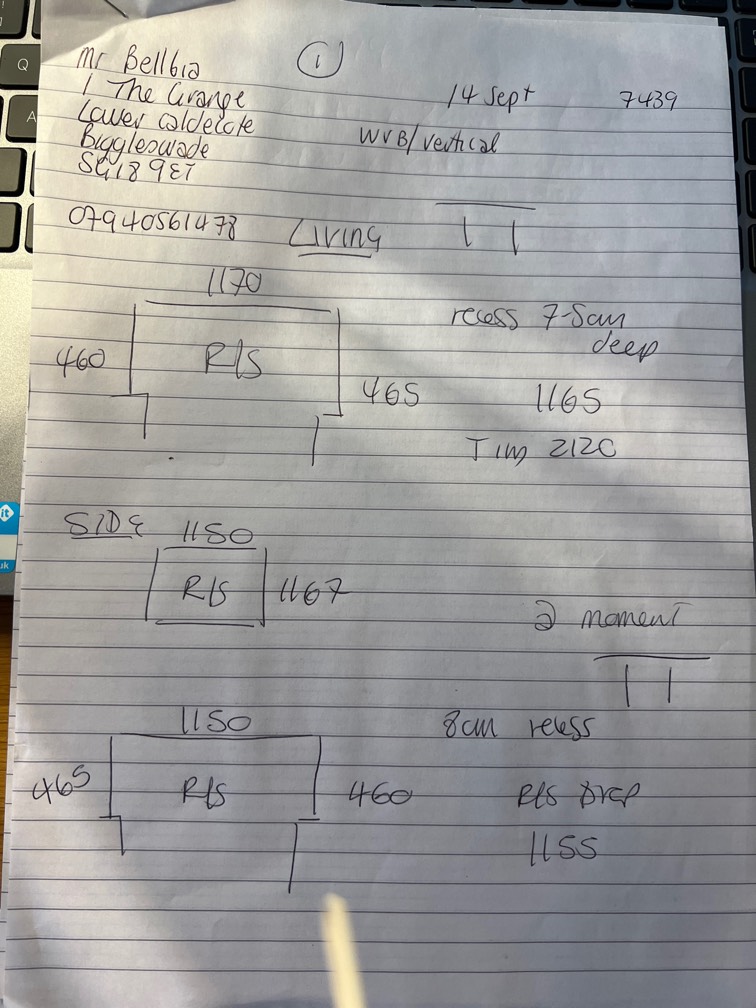 1
Mr Bellbia
1 The Grange
Lower Caldecote
Biggleswade
SG18 9ET
14 Sept
7439
WVB/Vertical
07940561478
Living
1170
460
R/S
465
recess 7-5cm
deep
1165
2120
SIDE
1150
R/S
1167
moment
1150
465
R/S
460
8cm recess
R/S Drop
1155
Q
A
it
uk